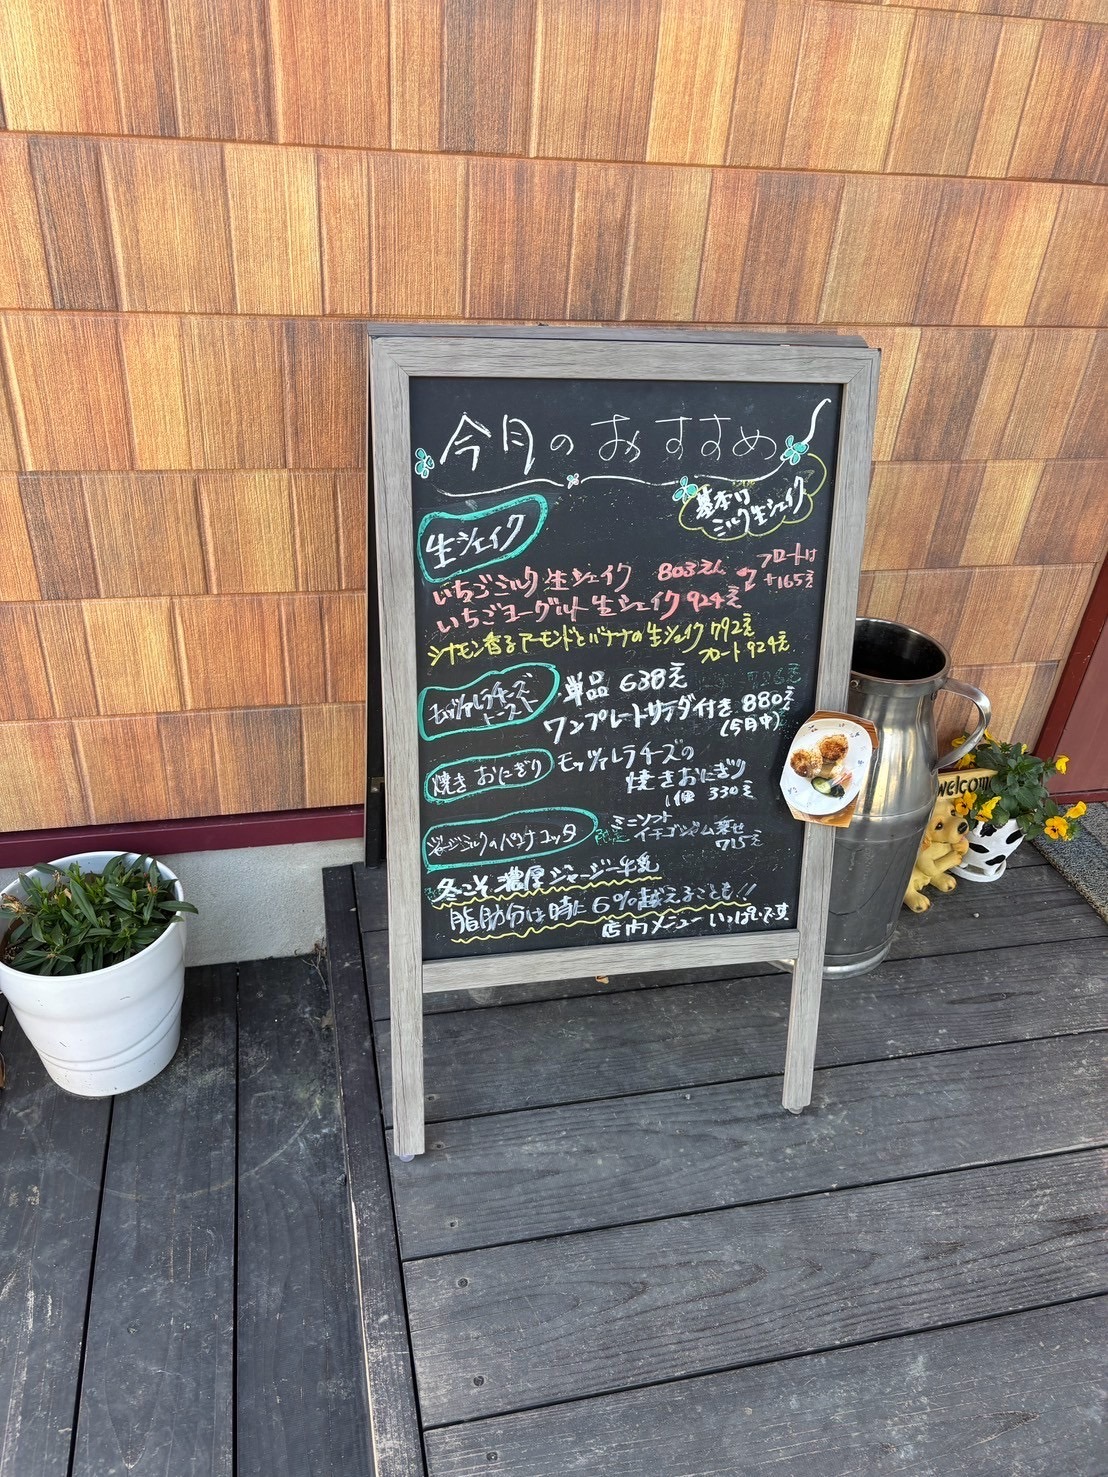 今月のおすすめ
基本は
ミルク生シェイク
生シェイク
いちごミルク生シェイク 803えん
フロートは
+165え
いちごヨーグルト生シェイク 924え
シナモン香るアーモンドとバナナの生シェイク 792え
フロート 924え
モッツァレラチーズ
トースト
・単品 638え
ワンプレートサラダ付き 880え
(今月中)
焼きおにぎり
モッツァレラチーズの
焼きおにぎり
1個 330え
ジャージーミルクのパンナコッタ
限定
ミニソフト
イチゴジャム乗せ
715え
冬こそ濃厚ジャージー牛乳
脂肪分は時に6%越えることも!!
店内メニューいっぱいです
welcome